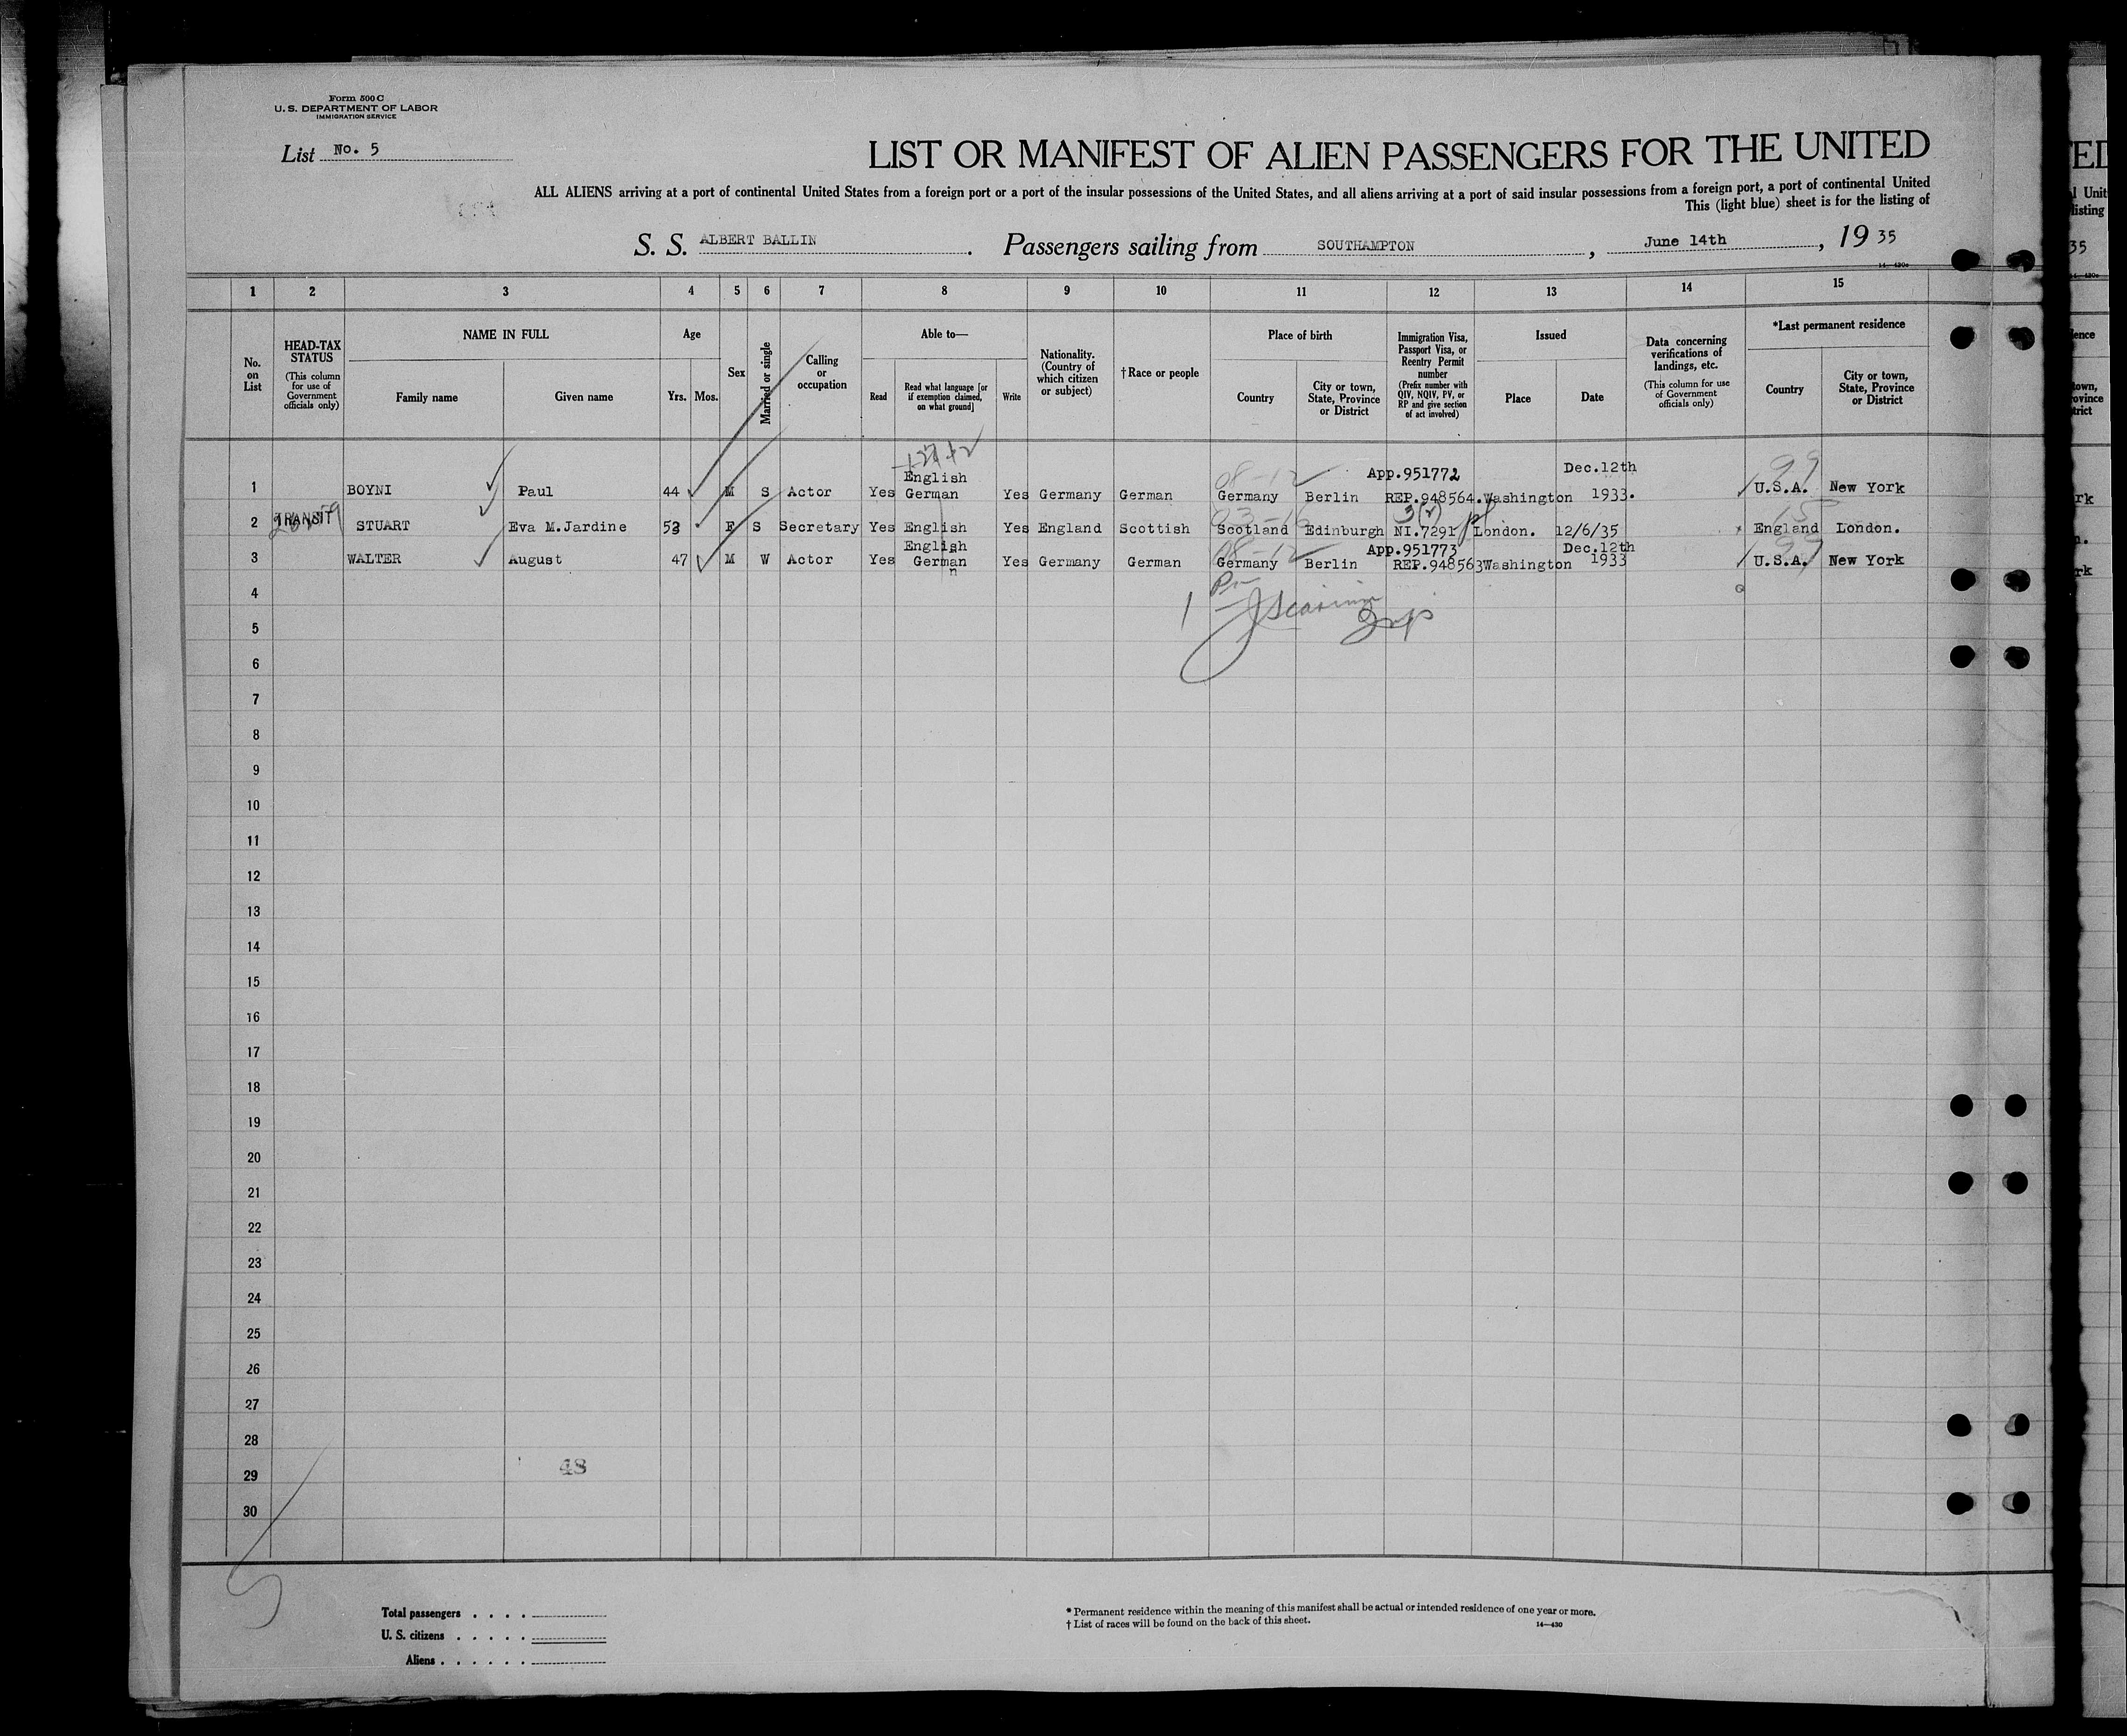 Form 500 C
U. S. DEPARTMENT OF LABOR
IMMIGRATION SERVICE
List No. 5
LIST OR MANIFEST OF ALIEN PASSENGERS FOR THE UNITED
ALL ALIENS arriving at a port of continental United States from a foreign port or a port of the insular possessions of the United States, and all aliens arriving at a port of said insular possessions from a foreign port, a port of continental United
This (light blue) sheet is for the listing of
S. S. ALBERT BALLIN . Passengers sailing from SOUTHAMPTON , June 14th , 19 35
14—430c
1 2 3 4 5 6 7 8 9 10 11 12 13 14 15
No. on List
HEAD-TAX STATUS (This column for use of Government officials only)
NAME IN FULL
Family name Given name
Age
Yrs. Mos.
Sex
Married or single
Calling or occupation
Able to—
Read Read what language [or if exemption claimed, on what ground] Write
Nationality. (Country of which citizen or subject)
†Race or people
Place of birth
Country City or town, State, Province or District
Immigration Visa, Passport Visa, or Reentry Permit number (Prefix number with QIV, NQIV, PV, or RP and give section of act involved)
Issued
Place Date
Data concerning verifications of landings, etc. (This column for use of Government officials only)
*Last permanent residence
Country City or town, State, Province or District
1 BOYNI Paul 44 M S Actor Yes English German Yes Germany German Germany Berlin App.951772 REP.948564. Washington Dec.12th 1933. U.S.A. New York
08-12 99
2 TRANSIT STUART Eva M.Jardine 53 F S Secretary Yes English Yes England Scottish Scotland Edinburgh NI.7291 London. 12/6/35 England London.
3(2)
3 WALTER August 47 M W Actor Yes English German Yes Germany German Germany Berlin App.951773 REP.948563 Washington Dec.12th 1933 U.S.A. New York
08-12 99
4
5
6
7
8
9
10
11
12
13
14
15
16
17
18
19
20
21
22
23
24
25
26
27
28
29
30
48
Total passengers . . . .
U. S. citizens . . . . .
Aliens . . . . . .
* Permanent residence within the meaning of this manifest shall be actual or intended residence of one year or more.
† List of races will be found on the back of this sheet.
14—430